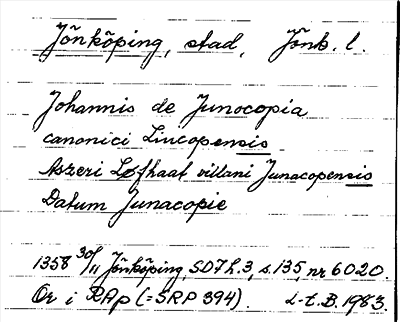 Jönköping, stad, Jönk. l.
Johannis de Junocopia
canonici Lincopensis
Aszeri Lofhaat villani Junacopensis
Datum Junacopie
1358 30/11 Jönköping, SD 7 h.3, s.135, nr 6020.
Or i RAp (=SRP 394). L-E.B. 1983.